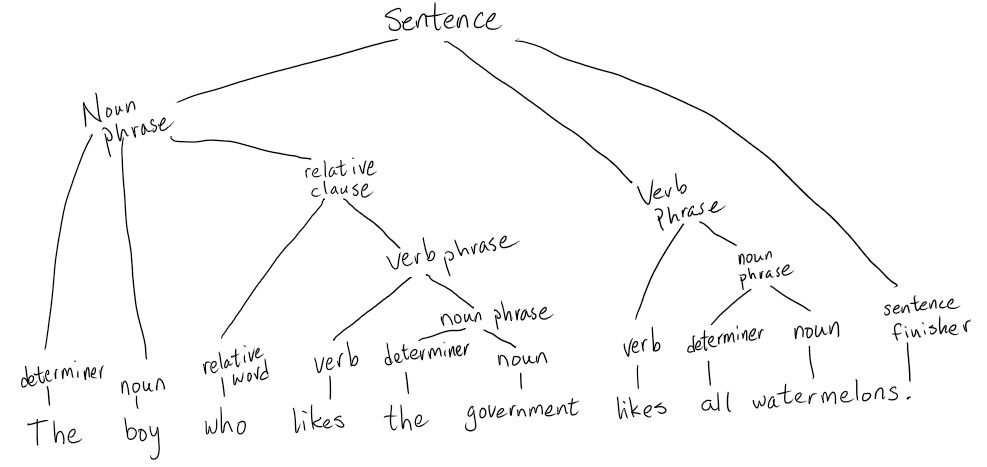 Sentence
Noun
phrase
relative
clause
Verb
phrase
verb phrase
noun
phrase
noun phrase
sentence
finisher
determiner
noun
relative
word
verb
determiner
noun
verb
determiner
noun
The boy who likes the government likes all watermelons.